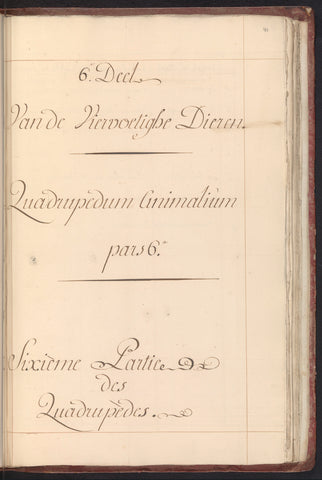 6.e Deel
Van de Viervoetighe Dieren.
Quadrupèdum Animalium
pars 6.a
Sixième Partie
des
Quadrupèdes.